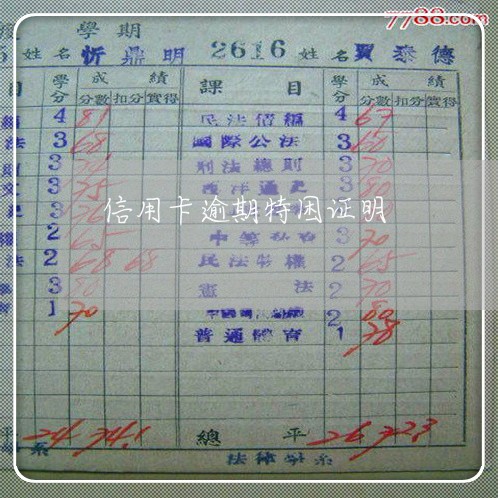 7788.com
學期
姓名 忻鼎明 2616 姓名 賈泰德
目 學分 成績 課目 學分 成績
分數 扣分 實得 分數 扣分 實得
4 81 民法債編 4 67
法 3 68 國際公法 3 60
3 刑法總則 3 70
文 3 75 西洋通史 3 80
信用卡逾期特困证明
權 2 65 3 70
法 2 68 68 民法物權 2 65
3 80 憲法 2 70
1 70 2 80
普通體育 1 78
平 24 74.1 總平 26 72.3
系 法律學系